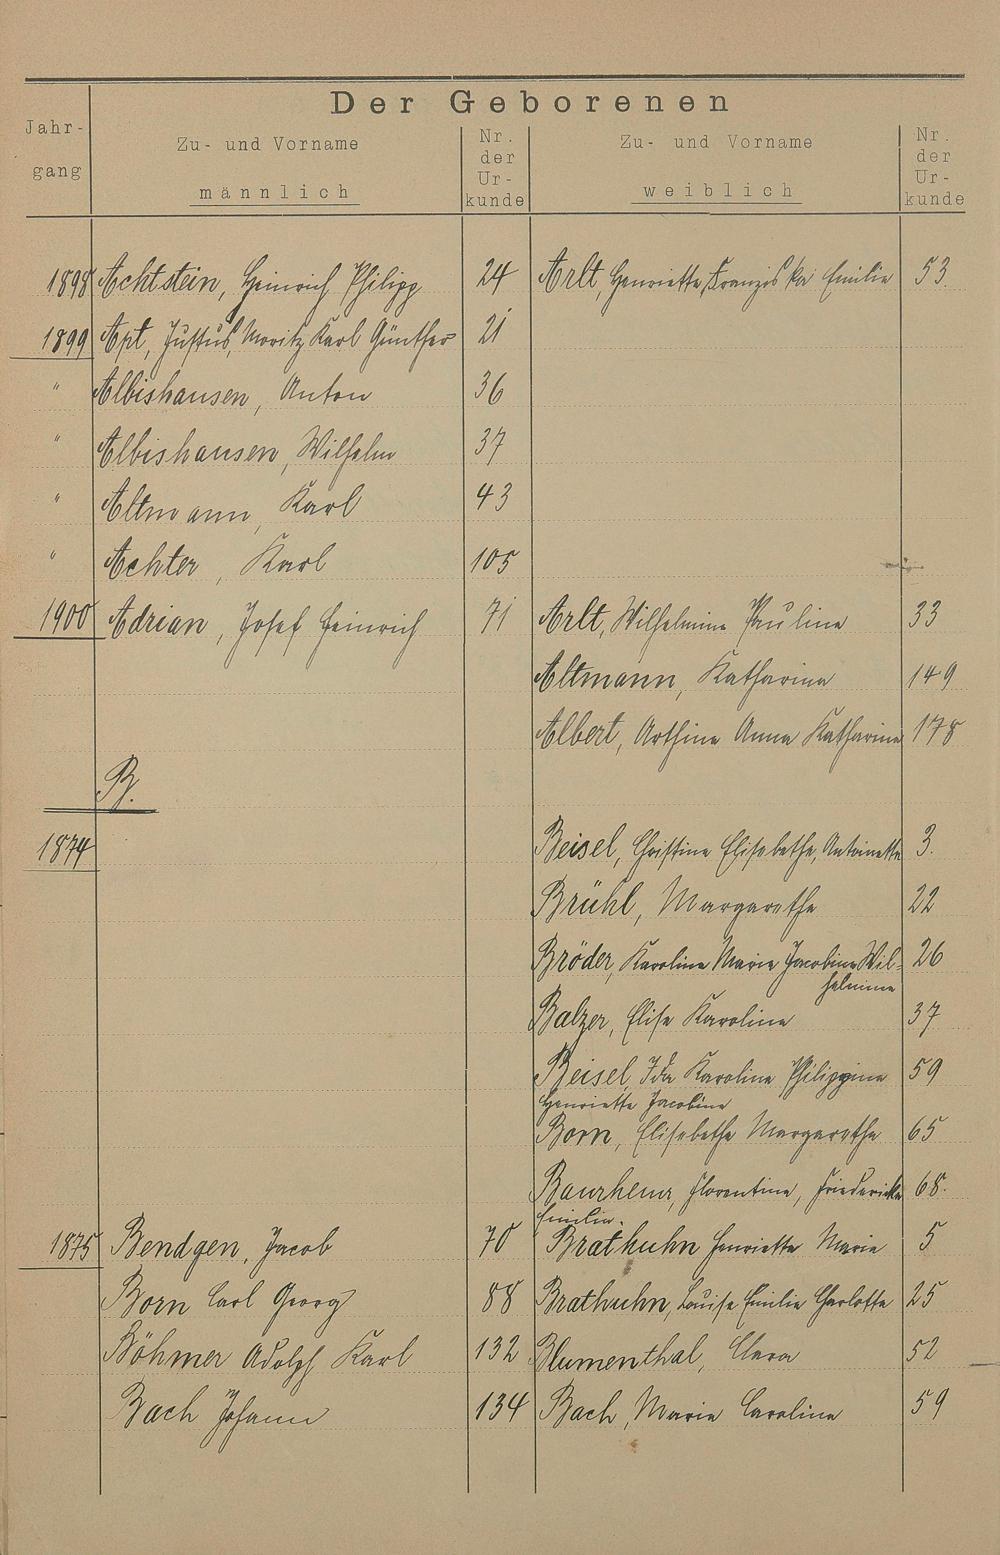 Der Geborenen
Jahr-
gang
Zu- und Vorname
männlich
Nr.
der
Ur-
kunde
Zu- und Vorname
weiblich
Nr.
der
Ur-
kunde
1898 Achtstein, Heinrich Philipp 24 Arlt, Henriette, Franziska Emilie 53.
1899 Apt, Justus, Moritz Karl Günther 21
" Albishausen, Anton 36
" Albishausen, Wilhelm 37
" Altmann, Karl 43
" Achter, Karl 105
1900 Adrian, Josef Heinrich 71 Arlt, Wilhelmine Pauline 33
Altmann, Katharina 149
Albert, Anna Katharina 178
B.
1874 Beisel, Christine Elisabethe, Antoinette 3.
Brühl, Margarethe 22
Bröder, Karoline Marie Jacobine Wil- 26
helmine
Balzer, Elise Karoline 37
Beisel, Ida Karoline Philippine 59
Henriette Jacobine
Born, Elisabethe Margarethe 65
Baurhenn, Florentine, Friedericke 68.
Emilie.
1875 Bendgen, Jacob 70 Brathuhn Henriette Marie 5
Born Carl Georg 88 Brathuhn, Louise Emilie Charlotte 25
Böhmer Adolph Karl 132 Blumenthal, Clara 52
Bach Johann 134 Bach, Marie Caroline 59